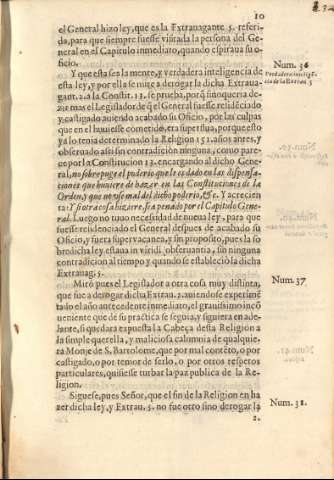 10
el General hizo ley, que es la Extrauagante 5. referi-
da, para que siempre fuesse visitada la persona del Ge-
neral en el Capitulo inmediato, quando espiraua su o-
ficio.
Y que esta sea la mente, y verdadera inteligencia de
esta ley, y por ella se mire a derogar la dicha Extraua-
gant. 2. a la Const. 13. se prueba, porq̃ si no querer de-
zir mas el Legislador de q̃ el General fuesse residẽciado
y castigado auiendo acabado su Oficio, por las culpas
que en el huuiesse cometido, era superflua, porque esto
ya lo tenia determinado la Religion 151. años antes, y
obseruado assi sin contradicion ninguna, como pare-
ce por la Constitucion 12. encargando al dicho Gene-
ral, no sobrepuge el poderio que le es dado en las dispensa-
ciones que huuiere de hazer en las Constituciones de la
Orden, y que no vse mal del dicho poderio, &c. Y acrecien
ta: Y si otra cosa hiziere, sea penado por el Capitulo Gene-
ral. Luego no tuuo necessidad de nueua ley, para que
fuesse residenciado el General despues de acabado su
Oficio, y fuera superuacanea, y sin proposito, pues la so
bredicha ley estaua in viridi obseruantia, sin ninguna
contradicion al tiempo y quando se estableciò la dicha
Extrauag. 5.
Num. 36
Verdadera intelige
cia de la Extrau. 5
Mirò pues el Legislador a otra cosa muy distinta,
que fue a derogar dicha Extrau. 2. auiendose experimẽ
tado el año antecedente inmediato, el grauissimo incõ
ueniente que de su practica se seguia, y siguiera en ade-
lante, si quedara expuesta la Cabeça desta Religion a
la simple querella, y maliciosa calumnia de qualquie-
ra Monje de S. Bartolome, que por mal contẽto, o por
castigado, o por temor de serlo, o por otros respetos
particulares, quisiesse turbar la paz publica de la Re-
ligion.
Num. 37
Siguese, pues Señor, que el fin de la Religion en ha
zer dicha ley, y Extrau. 5. no fue otro sino derogar la
Num. 38.
2.